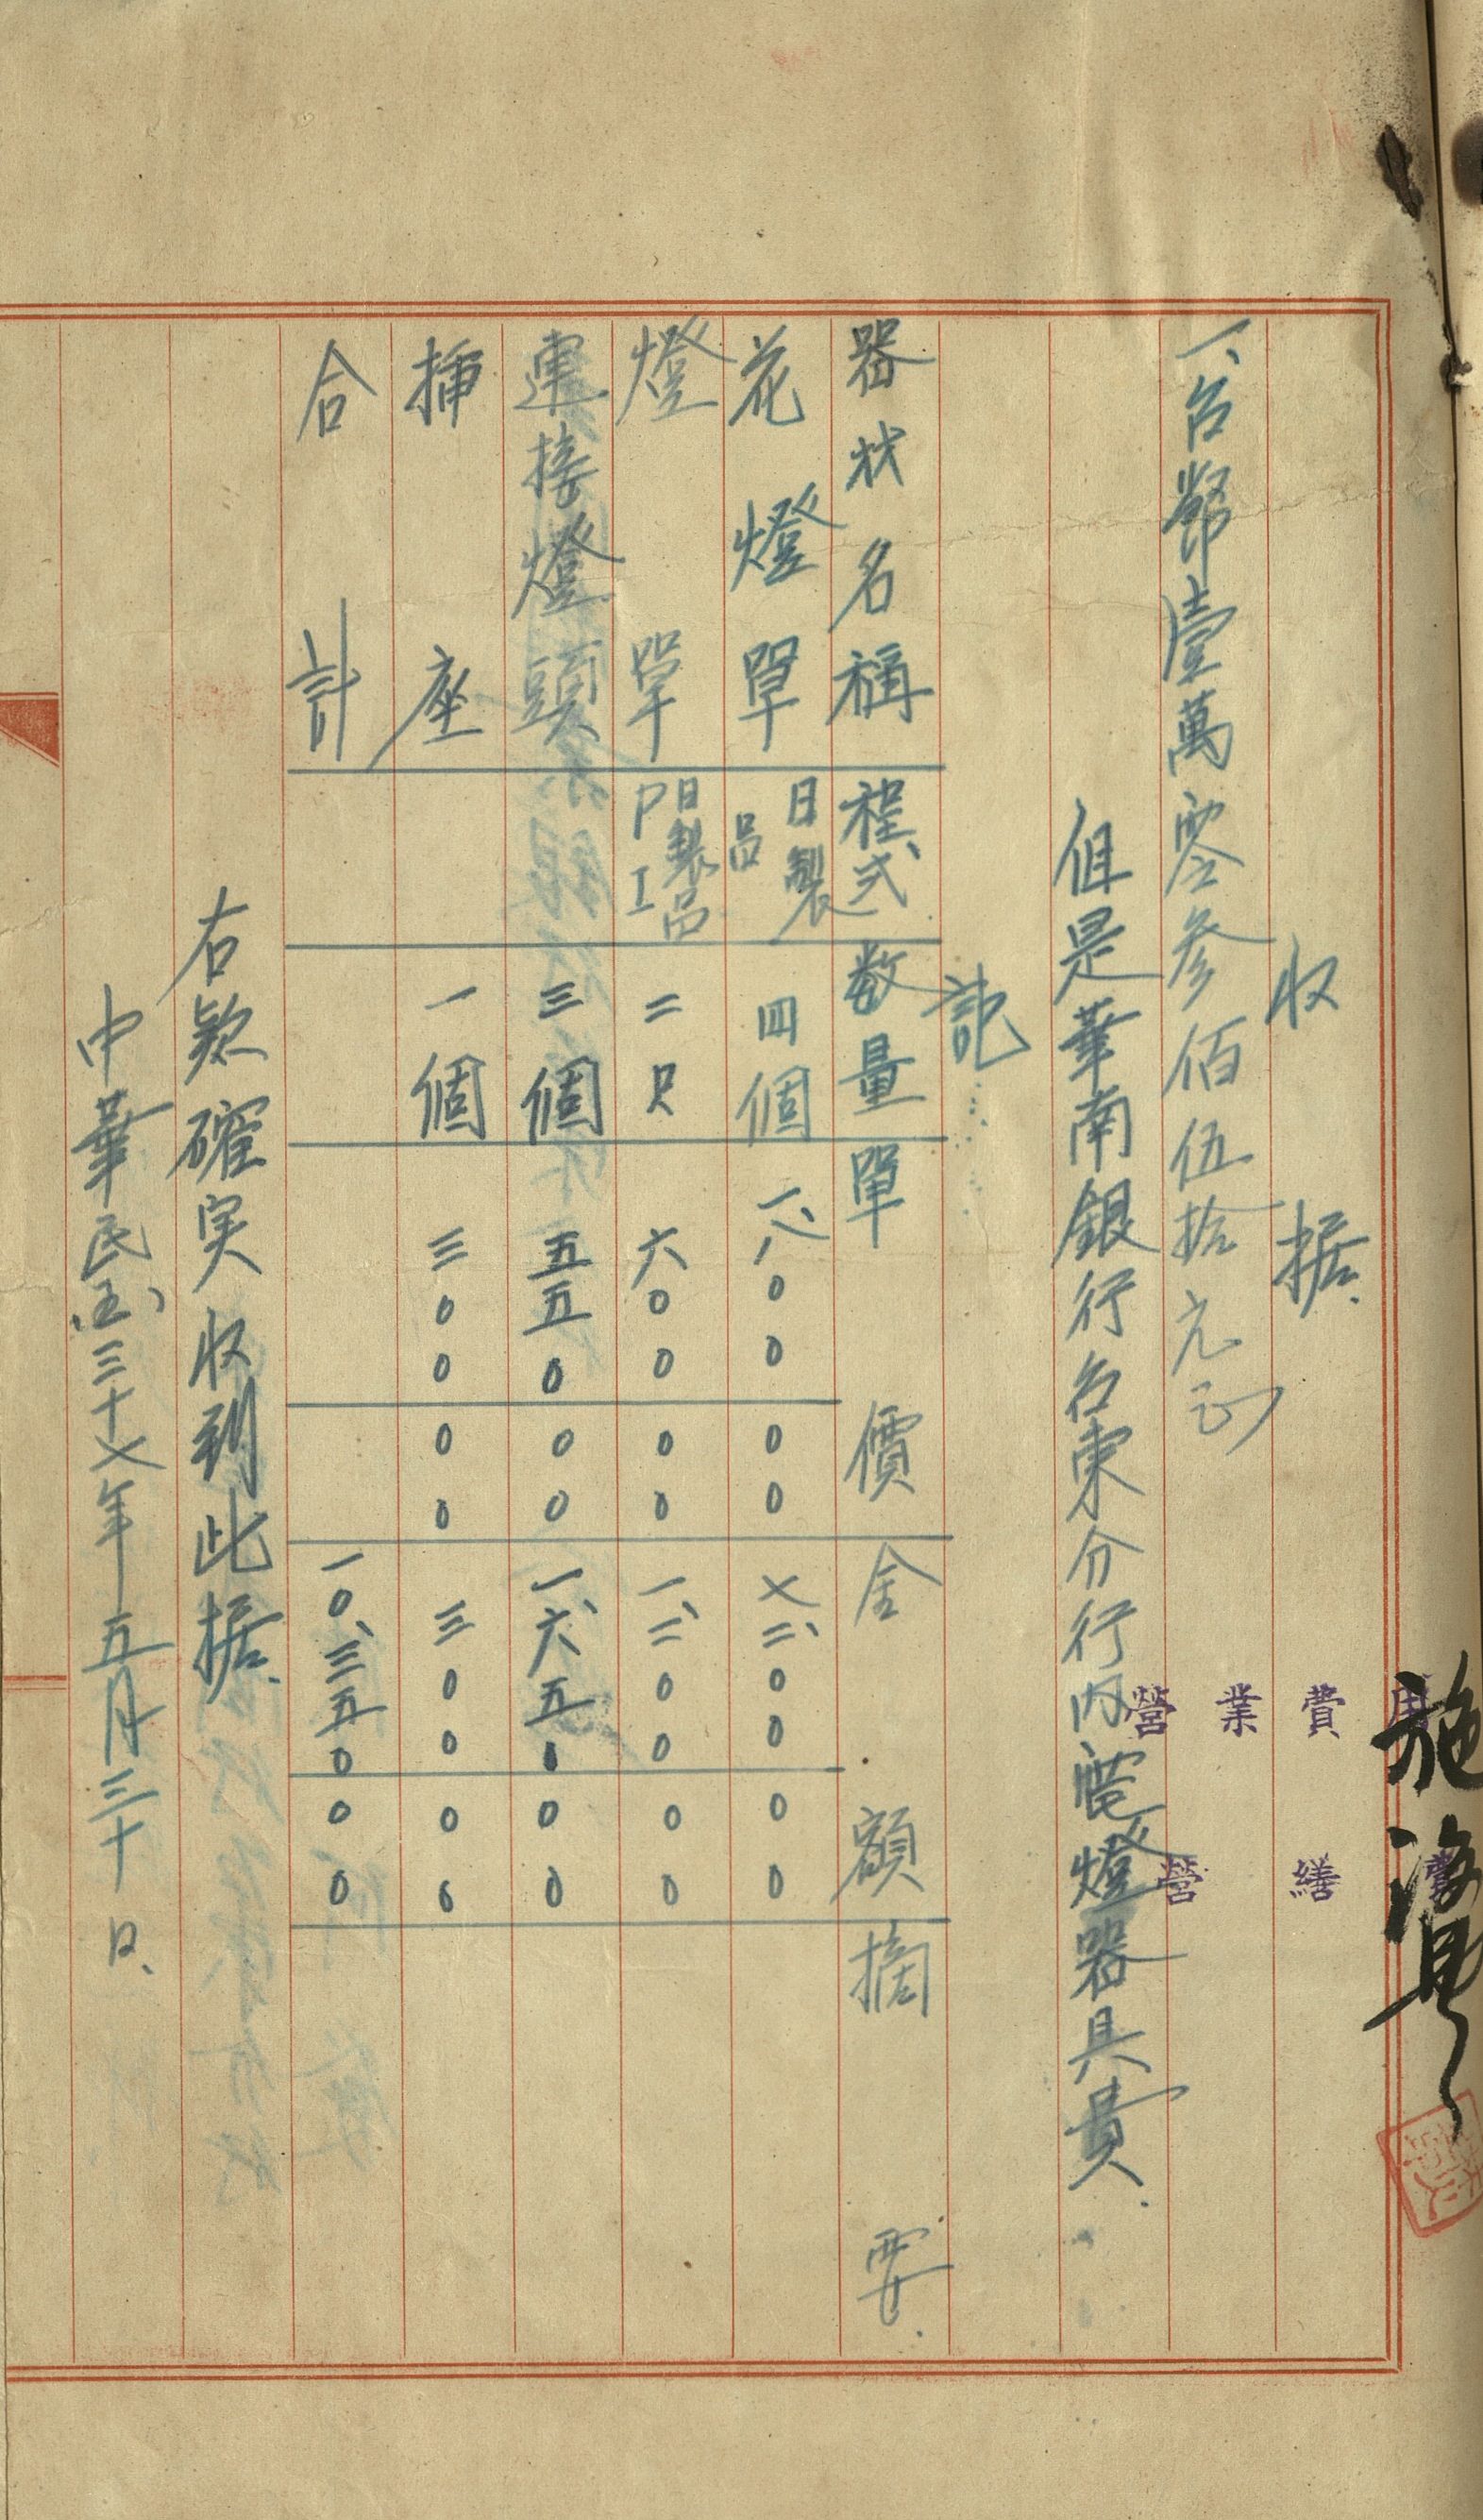 收据
一、台幣壹萬零參佰伍拾元正
但是華南銀行台東分行内電燈器具費
記
器狀名稱 程式 数量 單價 金額 摘要
花燈單 日製品 四個 一、八〇〇 〇〇 七、二〇〇 〇〇
燈單 日製品 二只 六〇〇 〇〇 一、二〇〇 〇〇
連接燈頭 三個 五五〇 〇〇 一、六五〇 〇〇
揷座 一個 三〇〇 〇〇 三〇〇 〇〇
合計 一〇、三五〇 〇〇
右款確実收到此据
中華民国三十七年五月三十日
營業費用
營繕費
施